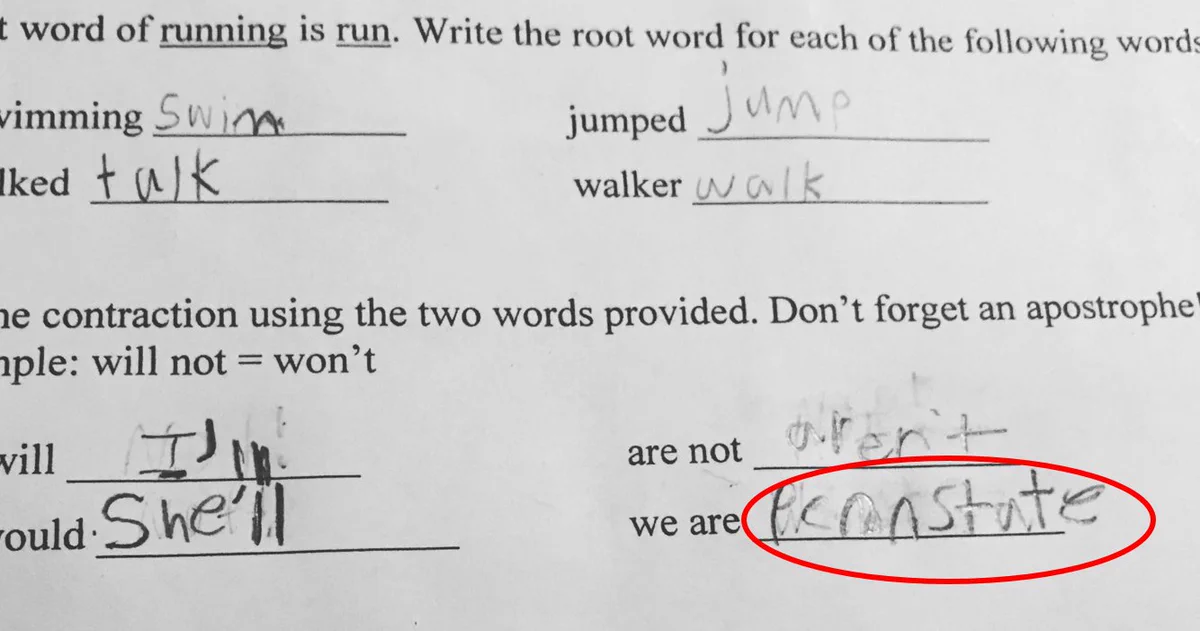 t word of running is run. Write the root word for each of the following words
vimming Swim jumped jump
lked talk walker walk
ne contraction using the two words provided. Don't forget an apostrophe!
nple: will not = won't
will I'll are not aren't
ould She'll we are Pennstate